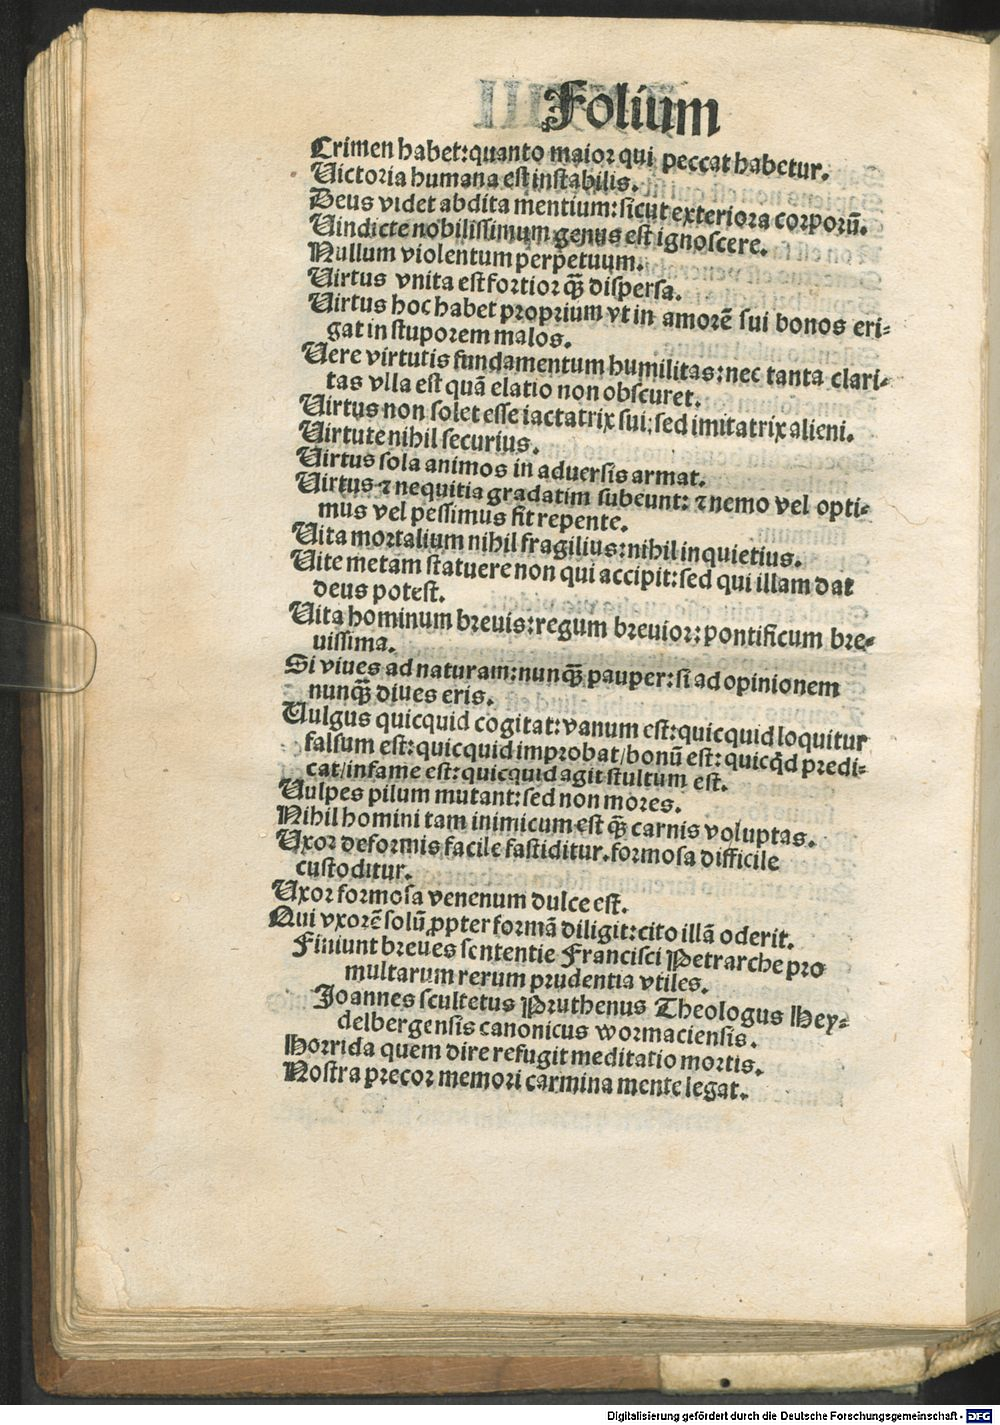 Folium
Crimen habet:quanto maior qui peccat habetur.
Victoria humana est instabilis.
Deus videt abdita mentium:sicut exteriora corporū.
Vindicte nobilissimum genus est ignoscere.
Nullum violentum perpetuum.
Virtus vnita est fortior qꝫ dispersa.
Virtus hoc habet proprium vt in amorē sui bonos eri-
gat in stuporem malos.
Vere virtutis fundamentum humilitas:nec tanta clari-
tas vlla est quā elatio non obscuret.
Virtus non solet esse iactatrix sui:sed imitatrix alieni.
Virtute nihil securius.
Virtus sola animos in aduersis armat.
Virtus ⁊ nequitia gradatim subeunt: ⁊ nemo vel opti-
mus vel pessimus fit repente.
Vita mortalium nihil fragilius:nihil inquietius.
Vite metam statuere non qui accipit:sed qui illam dat
deus potest.
Vita hominum breuis:regum breuior:pontificum bre-
uissima.
Si viues ad naturam:nunqꝫ pauper:si ad opinionem
nunqꝫ diues eris.
Vulgus quicquid cogitat:vanum est:quicquid loquitur
falsum est:quicquid improbat/bonū est:quicq̇d predi-
cat/infame est:quicquid agit stultum est.
Vulpes pilum mutant:sed non mores.
Nihil homini tam inimicum est qꝫ carnis voluptas.
Vxor deformis facile fastiditur.formosa difficile
custoditur.
Vxor formosa venenum dulce est.
Qui vxorē solū ꝓpter formā diligit:cito illā oderit.
Finiunt breues sententie Francisci Petrarche pro
multarum rerum prudentia vtiles.
Joannes scultetus Pruthenus Theologus Hey-
delbergensis canonicus wormaciensis.
Horrida quem dire refugit meditatio mortis.
Nostra precor memori carmina mente legat.
Digitalisierung gefördert durch die Deutsche Forschungsgemeinschaft - DFG